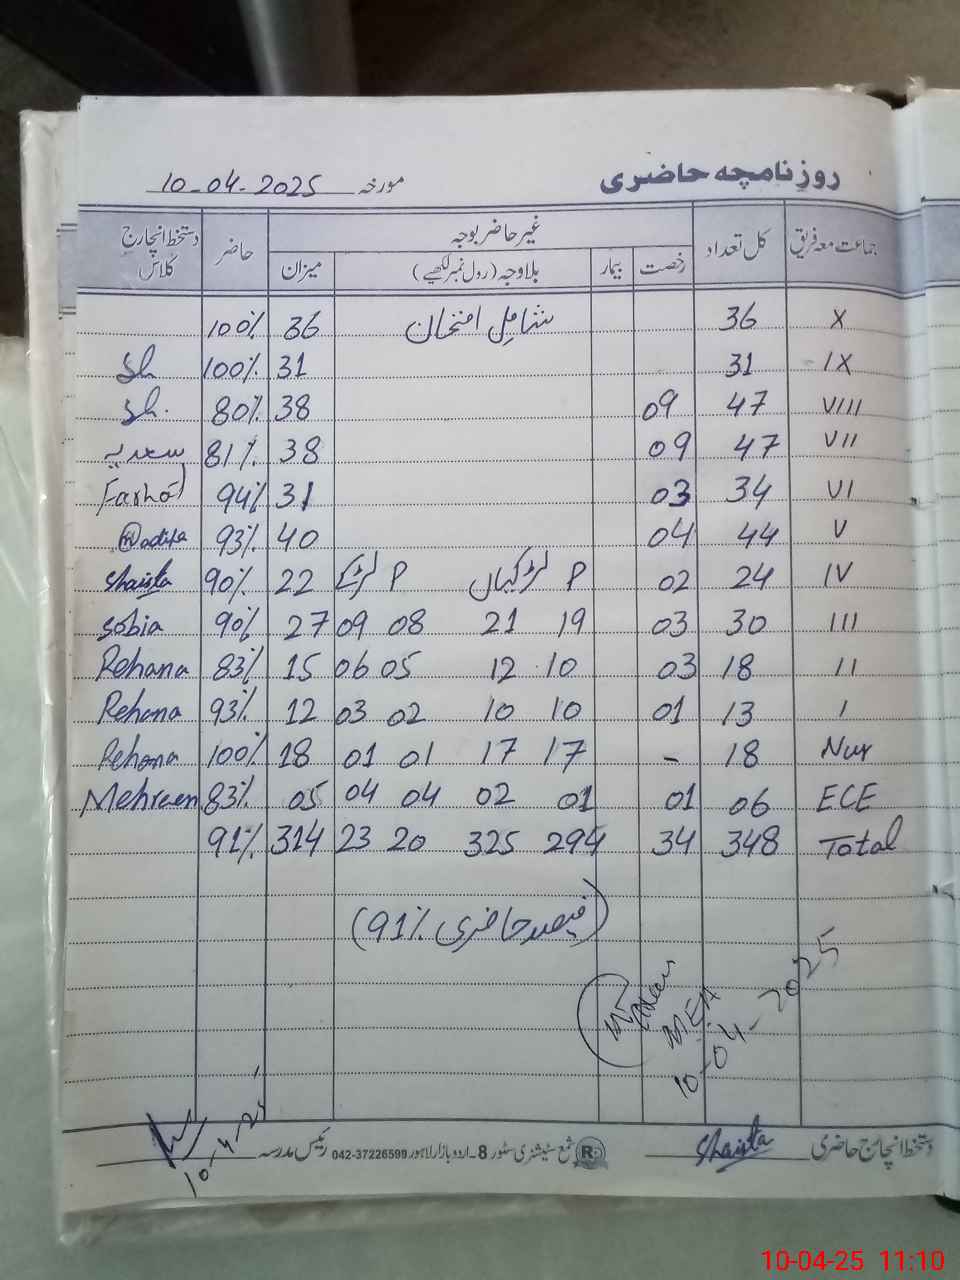 روزنامچہ حاضری مورخہ 10-04-2025
جماعت معہ فریق کل تعداد غیر حاضر بوجہ حاضر دستخط انچارج کلاس
رخصت بیمار بلاوجہ (رول نمبر لکھیے) میزان
X 36 شامل امتحان 36 100%
IX 31 31 100% Sh
VIII 47 09 38 80% Sh.
VII 47 09 38 81% سعدیہ
VI 34 03 31 94%
V 44 04 40 93%
IV 24 02 P لڑکیاں P لڑکے 22 90% Shaista
III 30 03 19 21 08 09 27 90% Sobia
II 18 03 10 12 05 06 15 83% Rehana
I 13 01 10 10 02 03 12 93% Rehana
Nur 18 - 17 17 01 01 18 100% Rehana
ECE 06 01 01 02 04 04 05 83% Mehreen
Total 348 34 294 325 20 23 314 91%
(فیصد حاضری 91%)
MEA
10-04-2025
10-4-25
دستخط انچارج حاضری Shaista R شمع سٹیشنری سٹور 8-اردو بازار لاہور 042-37226599 رئیس مدرسہ
10-04-25 11:10